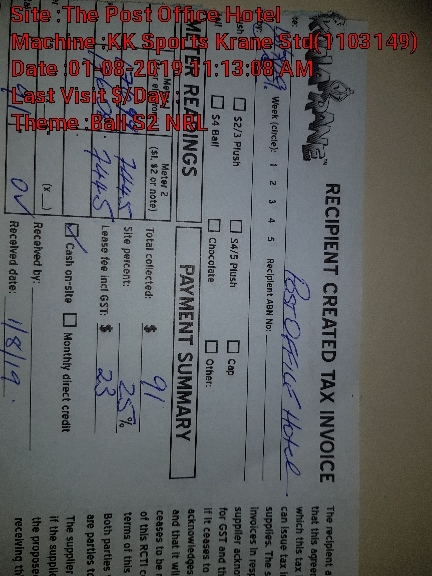 Site :The Post Office Hotel
Machine :KK Sports Krane Std(1103149)
Date :01-08-2019 11:13:08 AM
Last Visit $/Day
Theme :Ball S2 NRL
RECIPIENT CREATED TAX INVOICE
POST OFFICE Hotel
Week (circle): 1 2 3 4 5 Recipient ABN No:
S2/3 Plush S4/5 Plush Cap
S4 Ball Chocolate Other:
METER READINGS
PAYMENT SUMMARY
Meter 2
($1, $2 or note)
7445
7445
Total collected: $ 91
Site percent: 25%
Lease fee incl GST: $ 23
Cash on-site Monthly direct credit
Received by:
Received date: 1/8/19
The recipient
that this agree
which this tax
can issue tax
supplies. The s
invoices in resp
supplier ackno
for GST and th
if it ceases to
acknowledges
and that it will
ceases to be
of this RCTI c
terms of this
Both parties
are parties to
The supplier
if the supplie
the propose
receiving th